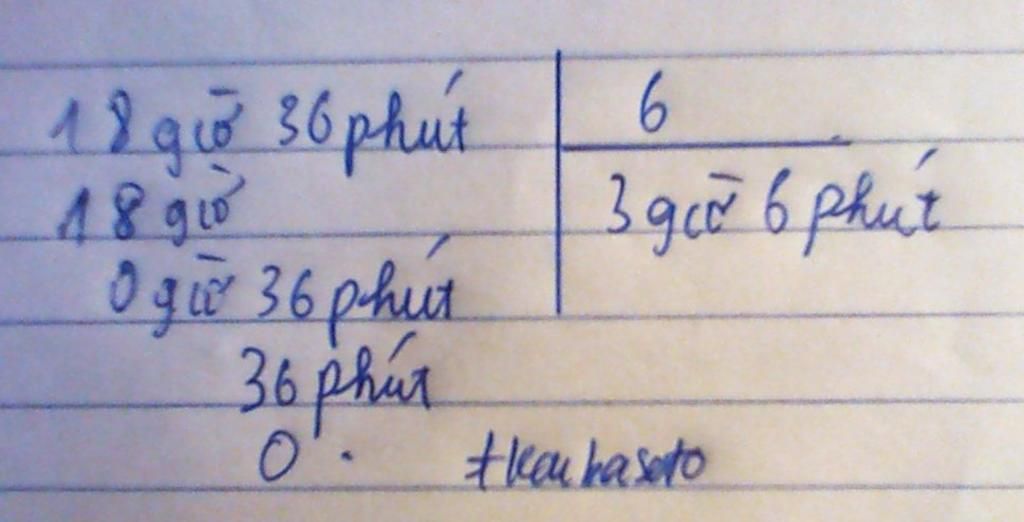 18 giờ 36 phút 6
18 giờ 3 giờ 6 phút
0 giờ 36 phút
36 phút
0.